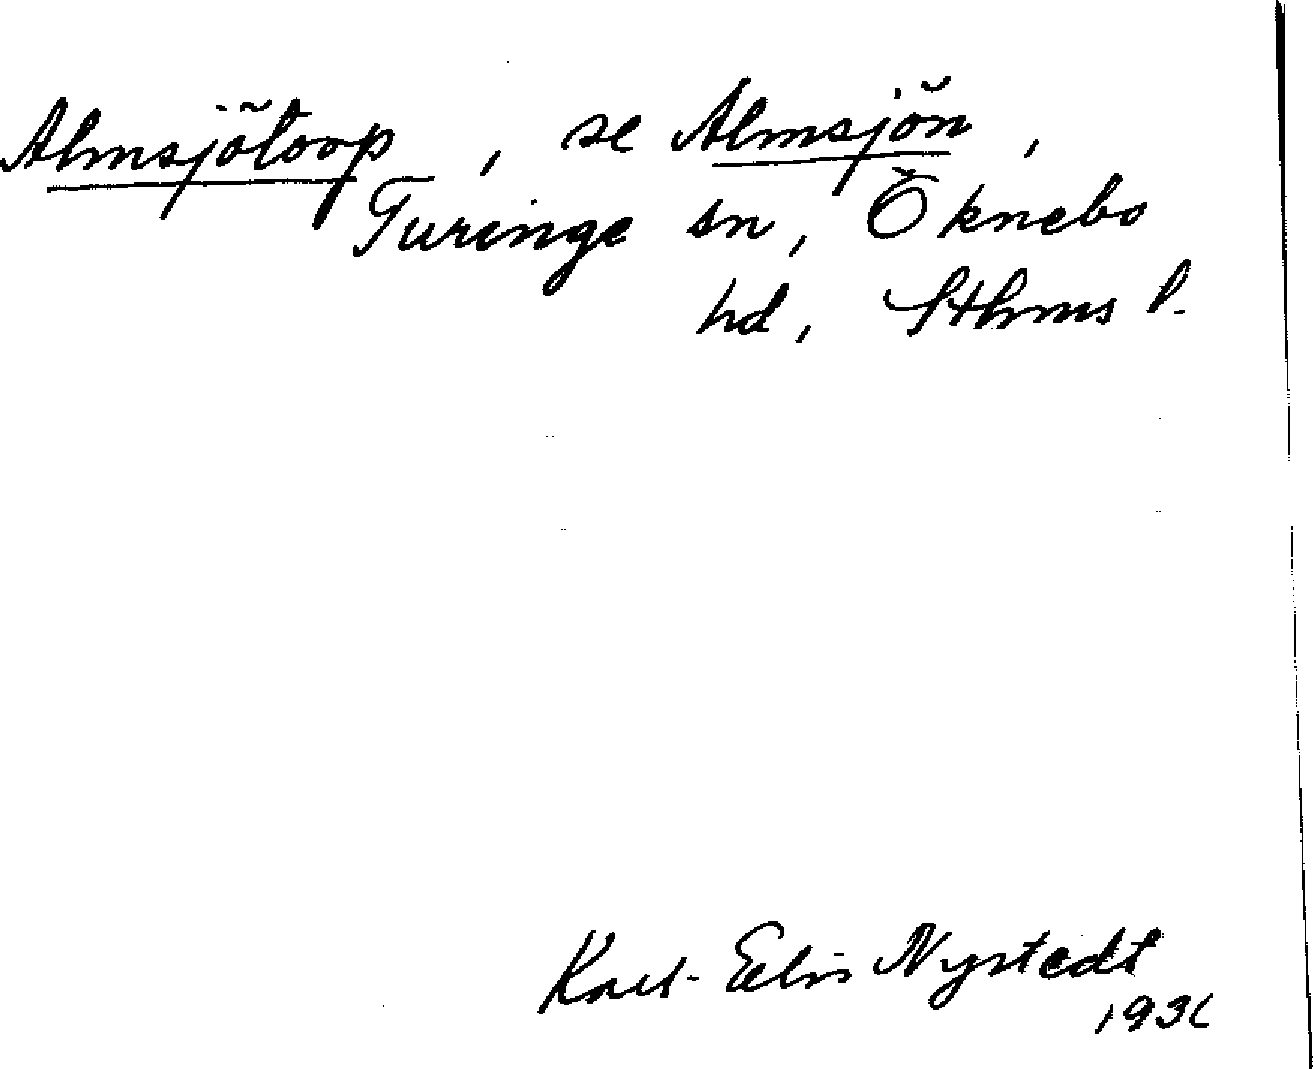 Almsjötorp, se Almsjön,
Turinge sn, Öknebo
hd, Sthms l.
Karl-Elis Nystedt
1936